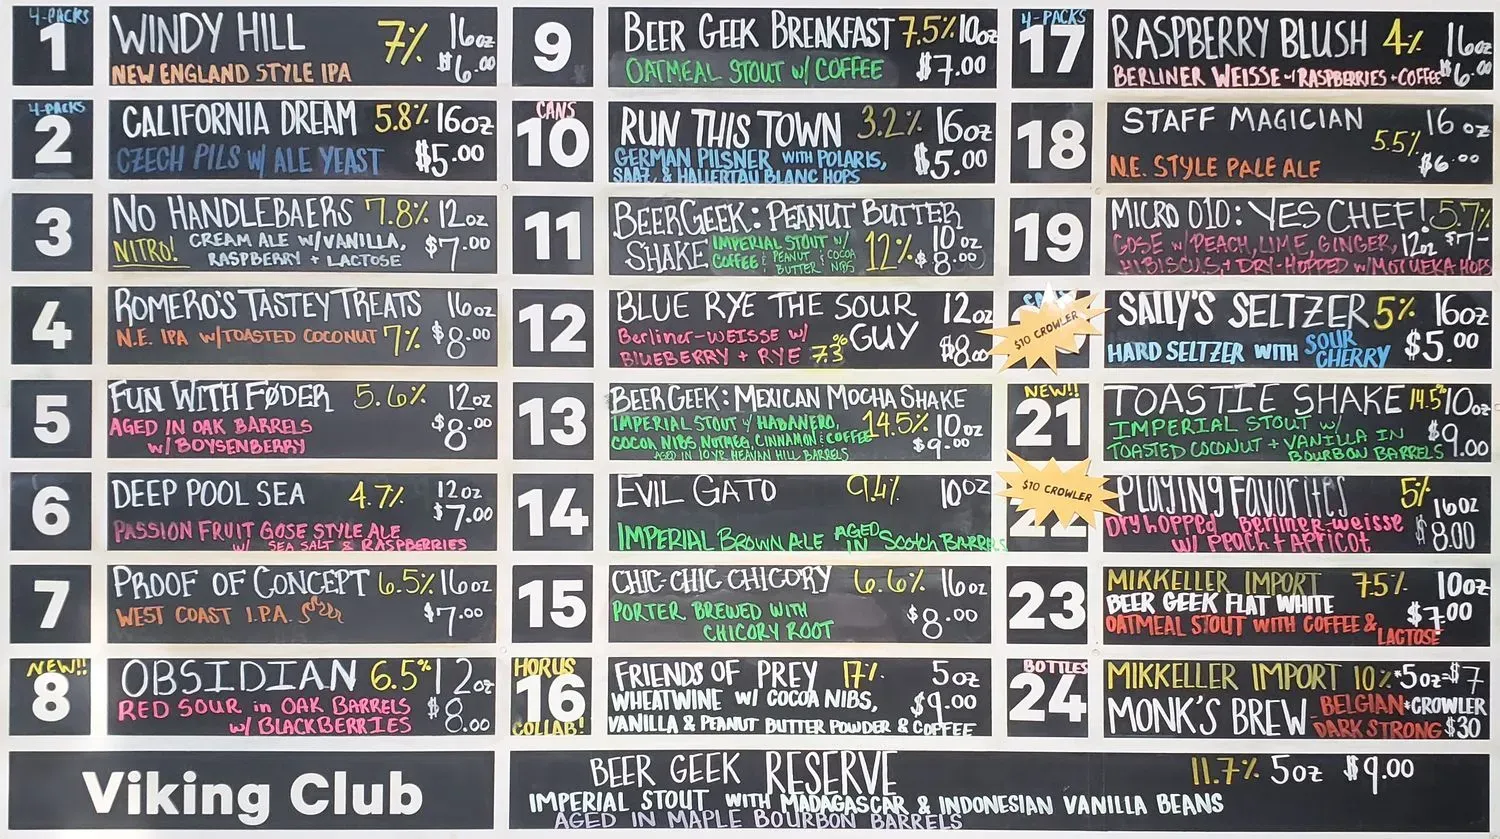 4-PACKS
1
WINDY HILL 7% 16oz
NEW ENGLAND STYLE IPA $6.00
4-PACKS
2
CALIFORNIA DREAM 5.8% 16oz
CZECH PILS W/ ALE YEAST $5.00
3
NO HANDLEBAERS 7.8% 12oz
NITRO! CREAM ALE W/VANILLA, $7.00
RASPBERRY + LACTOSE
4
ROMERO'S TASTEY TREATS 16oz
N.E. IPA W/TOASTED COCONUT 7% $8.00
5
FUN WITH FØDER 5.6% 12oz
AGED IN OAK BARRELS $8.00
W/ BOYSENBERRY
6
DEEP POOL SEA 4.7% 12oz
$7.00
PASSION FRUIT GOSE STYLE ALE
W/ SEA SALT & RASPBERRIES
7
PROOF OF CONCEPT 6.5% 16oz
WEST COAST I.P.A. $7.00
NEW!!
8
OBSIDIAN 6.5% 12oz
RED SOUR in OAK BARRELS $8.00
W/ BLACKBERRIES
9
BEER GEEK BREAKFAST 7.5% 10oz
OATMEAL STOUT W/ COFFEE $7.00
CANS
10
RUN THIS TOWN 3.2% 16oz
GERMAN PILSNER WITH POLARIS, $5.00
SAAZ, & HALLERTAU BLANC HOPS
11
BEERGEEK: PEANUT BUTTER
SHAKE IMPERIAL STOUT W/ 12% 10oz
COFFEE & PEANUT & COCOA $8.00
BUTTER NIBS
12
BLUE RYE THE SOUR 12oz
GUY
Berliner-WEISSE W/
BLUEBERRY + RYE 7.3% $8.00
13
BEERGEEK: MEXICAN MOCHA SHAKE
IMPERIAL STOUT W/ HABANERO, 14.5% 10oz
COCOA NIBS, NUTMEG, CINNAMON & COFFEE $9.00
AGED IN 10YR HEAVAN HILL BARRELS
14
EVIL GATO 9.4% 10oz
IMPERIAL BROWN ALE AGED IN Scotch BARRELS
15
CHIC-CHIC CHICORY 6.6% 16oz
PORTER BREWED WITH $8.00
CHICORY ROOT
HORUS
16
COLLAB!
FRIENDS OF PREY 17% 5oz
WHEATWINE W/ COCOA NIBS, $9.00
VANILLA & PEANUT BUTTER POWDER & COFFEE
4-PACKS
17
RASPBERRY BLUSH 4% 16oz
BERLINER WEISSE W/ RASPBERRIES + COFFEE $6.00
18
STAFF MAGICIAN 16oz
5.5%
N.E. STYLE PALE ALE $6.00
19
MICRO 010: YES CHEF! 5.7%
GOSE W/ PEACH, LIME, GINGER, 12oz $7-
HIBISCUS, + DRY-HOPPED W/MOTUEKA HOPS
$10 CROWLER
SALLY'S SELTZER 5% 16oz
HARD SELTZER WITH SOUR CHERRY $5.00
NEW!!
21
TOASTIE SHAKE 14.5% 10oz
IMPERIAL STOUT W/ $9.00
TOASTED COCONUT + VANILLA IN
BOURBON BARRELS
$10 CROWLER
22
PLAYING FAVORITES 5% 16oz
Dry hopped Berliner-weisse $8.00
W/ PEACH + APRICOT
23
MIKKELLER IMPORT 7.5% 10oz
BEER GEEK FLAT WHITE $7.00
OATMEAL STOUT WITH COFFEE & LACTOSE
BOTTLES
24
MIKKELLER IMPORT 10% *5oz-$7
MONK'S BREW BELGIAN *CROWLER
DARK STRONG $30
Viking Club
BEER GEEK RESERVE 11.7% 5oz $9.00
IMPERIAL STOUT WITH MADAGASCAR & INDONESIAN VANILLA BEANS
AGED IN MAPLE BOURBON BARRELS